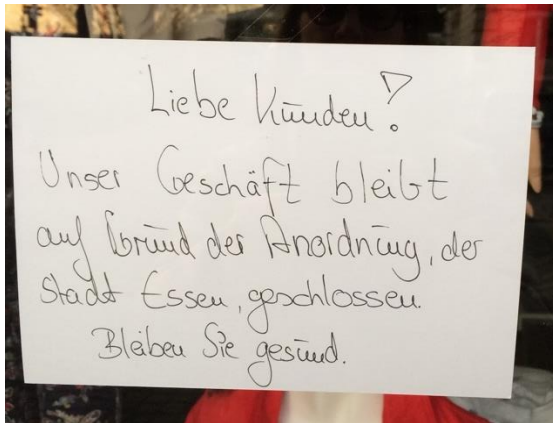 Liebe Kunden!
Unser Geschäft bleibt
auf Grund der Anordnung, der
Stadt Essen, geschlossen.
Bleiben Sie gesund.